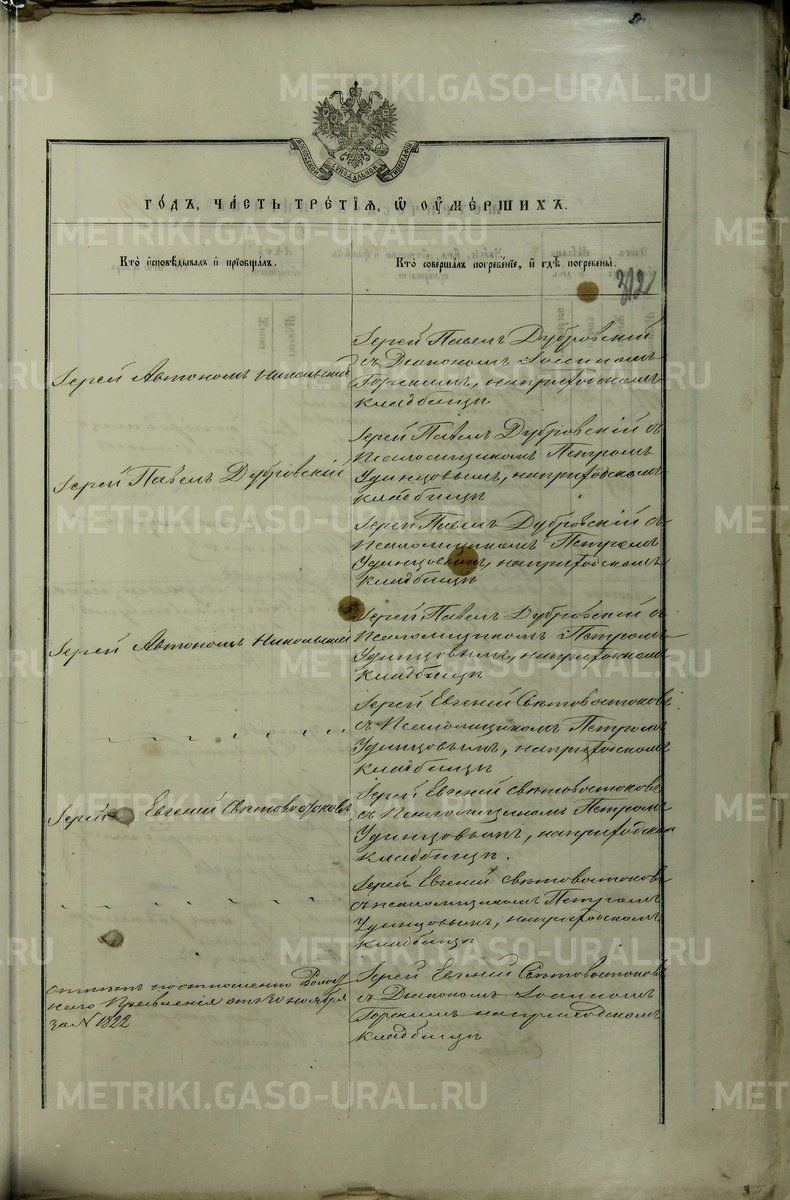 МОСКОВСКОЙ СУНОДАЛЬНОЙ ТИПОГРАФІИ
ГО́ДЪ, ЧА́СТЬ ТРЕ́ТІѦ, Ѡ҆ ОУ҆МЕ́РШИХЪ.
Кто̀ и҆сповѣ́дывалъ и҆ прїѡбща́лъ.
Кто̀ соверша́лъ погребе́нїе, и҆ гдѣ̀ погребены̀.
312
Іерей Автономъ Никольскій
Іерей Павелъ Дубровскій
съ Діакономъ Іоанномъ
Горскимъ, на приходскомъ
кладбищѣ
Іерей Павелъ Дубровскій
Іерей Павелъ Дубровскій съ
Псаломщикомъ Петромъ
Удинцовымъ, на приходскомъ
кладбищѣ
Іерей Павелъ Дубровскій съ
Псаломщикомъ Петромъ
Удинцовымъ, на приходскомъ
кладбищѣ
Іерей Автономъ Никольскій
Іерей Павелъ Дубровскій съ
Псаломщикомъ Петромъ
Удинцовымъ, на приходскомъ
кладбищѣ
Іерей Евгеній Святовостоковъ
съ Псаломщикомъ Петромъ
Удинцовымъ, на приходскомъ
кладбищѣ
Іерей Евгеній Святовостоковъ
Іерей Евгеній Святовостоковъ
съ Псаломщикомъ Петромъ
Удинцовымъ, на приходском
кладбищѣ.
Іерей Евгеній Святовостоковъ
съ псаломщикомъ Петромъ
Удинцовымъ, на приходскомъ
кладбищѣ
отпѣтъ по отношенію Волост
наго Правленія отъ 20 ноября
за № 1822
Іерей Евгеній Святовостоковъ
съ Діакономъ Іоанномъ
Горскимъ на приходскомъ
кладбищѣ
METRIKI.GASO-URAL.RU